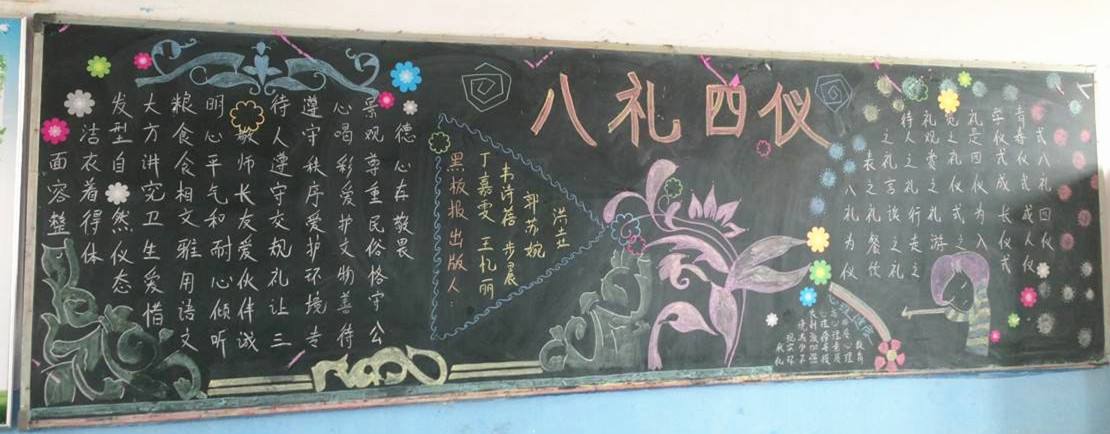 面容整
洁衣着得体
发型自然仪态
大方讲究卫生爱惜
粮食食相文雅用语文
明心平气和耐心倾听
敬师长友爱伙伴诚
待人遵守交规礼让三
遵守秩序爱护环境专
心唱彩爱护文物善待
景观尊重民俗恪守公
德心存敬畏
八礼四仪
黑板报出版人:
丁嘉雯 王礼丽
韦诗蓓 步晨
郭苏婉
洪垚
八礼为仪
表之礼餐饮
之礼言谈之礼
待人之礼行走之
礼观赏之礼游
览之礼仪式之
礼是四仪为入
学仪式成长仪式
青春仪式成人仪
式八礼四仪